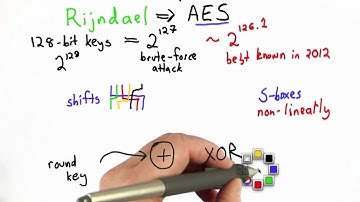 Rijndael ⇒ AES
128-bit keys = 2^127 ~ 2^126.1
2^128 brute-force attack best known in 2012
shifts S-boxes
non-linearly
round key → ⊕ XOR